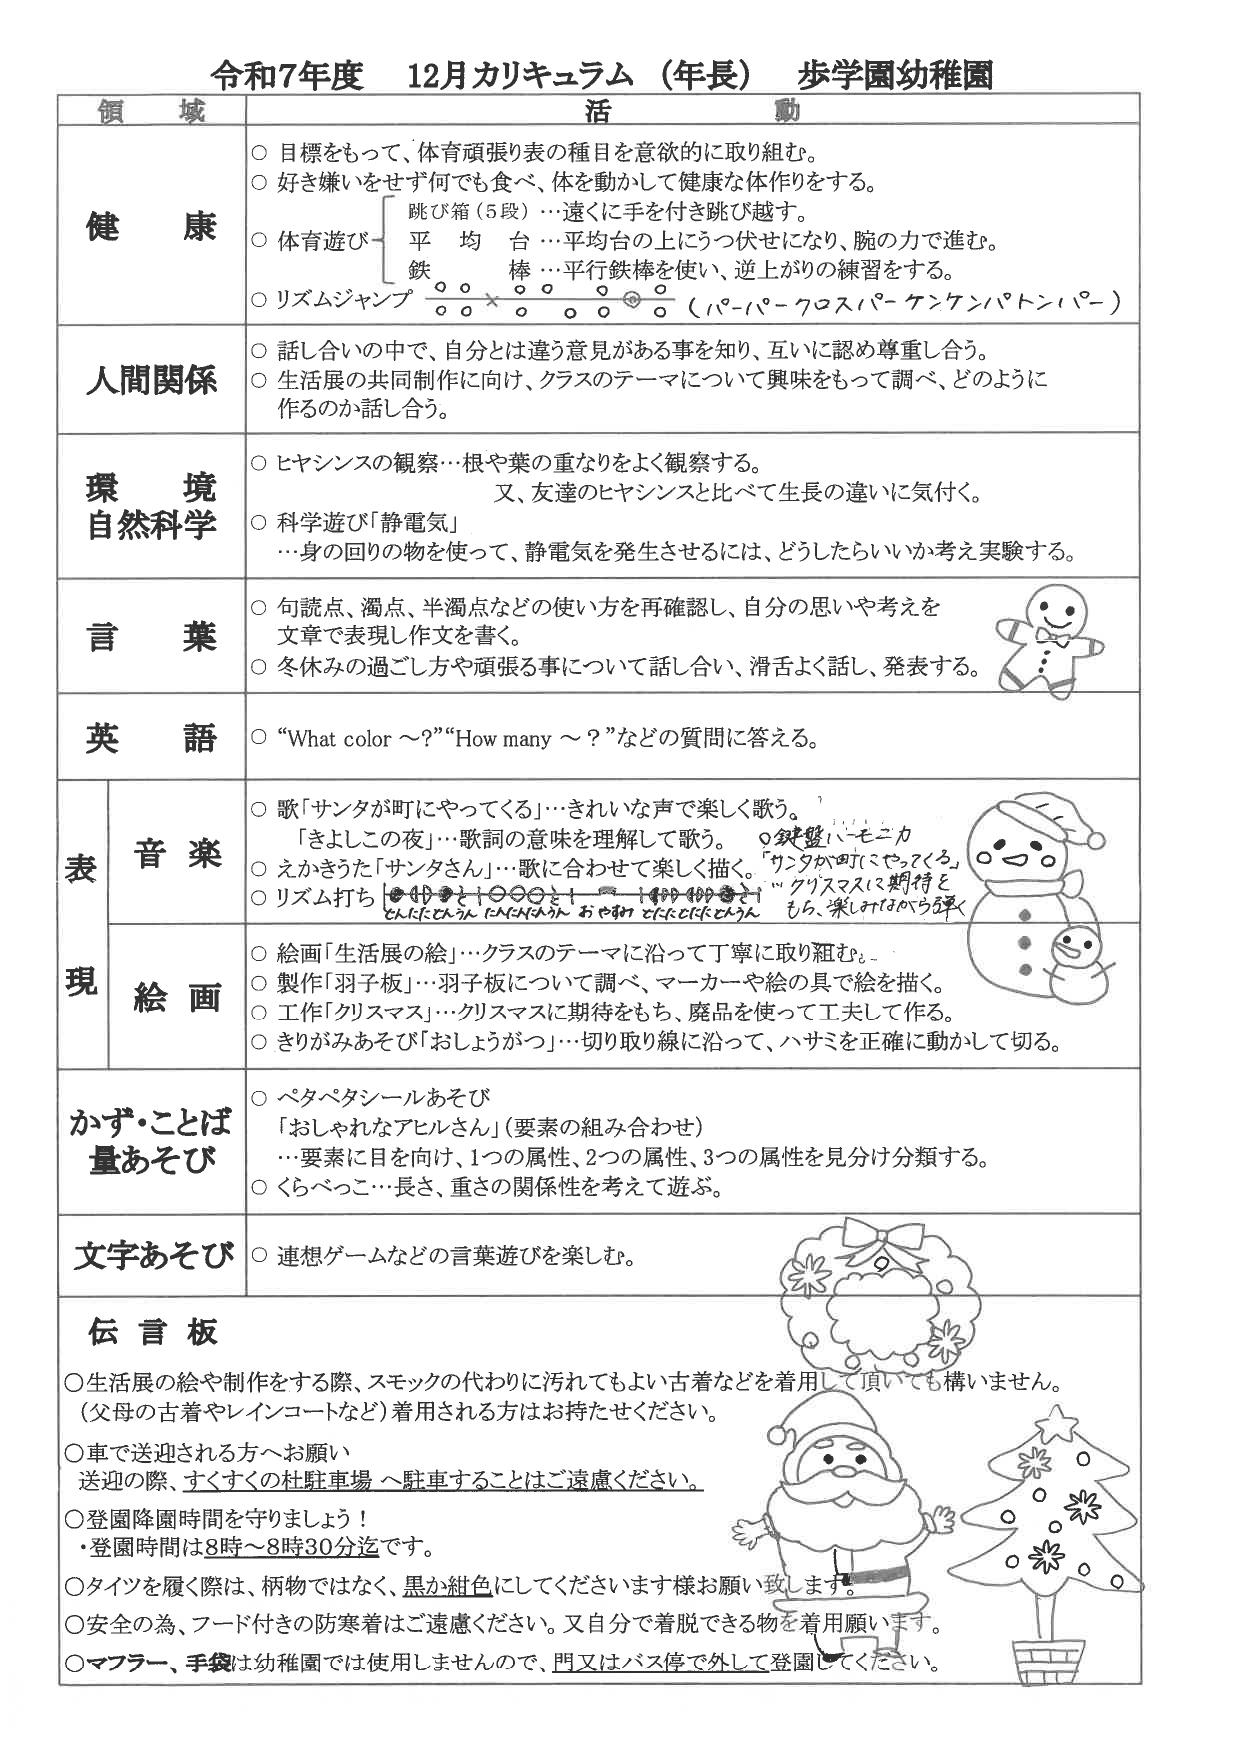 令和7年度　12月カリキュラム（年長）　歩学園幼稚園
領　域　活　動
健　康
○ 目標をもって、体育頑張り表の種目を意欲的に取り組む。
○ 好き嫌いをせず何でも食べ、体を動かして健康な体作りをする。
跳び箱（5段）…遠くに手を付き跳び越す。
○ 体育遊び 平　均　台…平均台の上にうつ伏せになり、腕の力で進む。
鉄　棒…平行鉄棒を使い、逆上がりの練習をする。
○ リズムジャンプ（パーパークロスパーケンケンパトンパー）
人間関係
○ 話し合いの中で、自分とは違う意見がある事を知り、互いに認め尊重し合う。
○ 生活展の共同制作に向け、クラスのテーマについて興味をもって調べ、どのように
作るのか話し合う。
環　境
自然科学
○ ヒヤシンスの観察…根や葉の重なりをよく観察する。
又、友達のヒヤシンスと比べて生長の違いに気付く。
○ 科学遊び「静電気」
…身の回りの物を使って、静電気を発生させるには、どうしたらいいか考え実験する。
言　葉
○ 句読点、濁点、半濁点などの使い方を再確認し、自分の思いや考えを
文章で表現し作文を書く。
○ 冬休みの過ごし方や頑張る事について話し合い、滑舌よく話し、発表する。
英　語
○ “What color ～?”“How many ～？”などの質問に答える。
表現
音楽
○ 歌「サンタが町にやってくる」…きれいな声で楽しく歌う。
「きよしこの夜」…歌詞の意味を理解して歌う。
○ えかきうた「サンタさん」…歌に合わせて楽しく描く。
○ リズム打ち
○鍵盤ハーモニカ
「サンタが町にやってくる」
…クリスマスに期待を
もち、楽しみながら弾く
絵画
○ 絵画「生活展の絵」…クラスのテーマに沿って丁寧に取り組む。
○ 製作「羽子板」…羽子板について調べ、マーカーや絵の具で絵を描く。
○ 工作「クリスマス」…クリスマスに期待をもち、廃品を使って工夫して作る。
○ きりがみあそび「おしょうがつ」…切り取り線に沿って、ハサミを正確に動かして切る。
かず・ことば
量あそび
○ ペタペタシールあそび
「おしゃれなアヒルさん」（要素の組み合わせ）
…要素に目を向け、1つの属性、2つの属性、3つの属性を見分け分類する。
○ くらべっこ…長さ、重さの関係性を考えて遊ぶ。
文字あそび
○ 連想ゲームなどの言葉遊びを楽しむ。
伝言板
○生活展の絵や制作をする際、スモックの代わりに汚れてもよい古着などを着用して頂いても構いません。
（父母の古着やレインコートなど）着用される方はお持たせください。
○車で送迎される方へお願い
送迎の際、すくすくの杜駐車場 へ駐車することはご遠慮ください。
○登園降園時間を守りましょう！
・登園時間は8時～8時30分迄です。
○タイツを履く際は、柄物ではなく、黒か紺色にしてくださいます様お願い致します。
○安全の為、フード付きの防寒着はご遠慮ください。又自分で着脱できる物を着用願います。
○マフラー、手袋は幼稚園では使用しませんので、門又はバス停で外して登園してください。